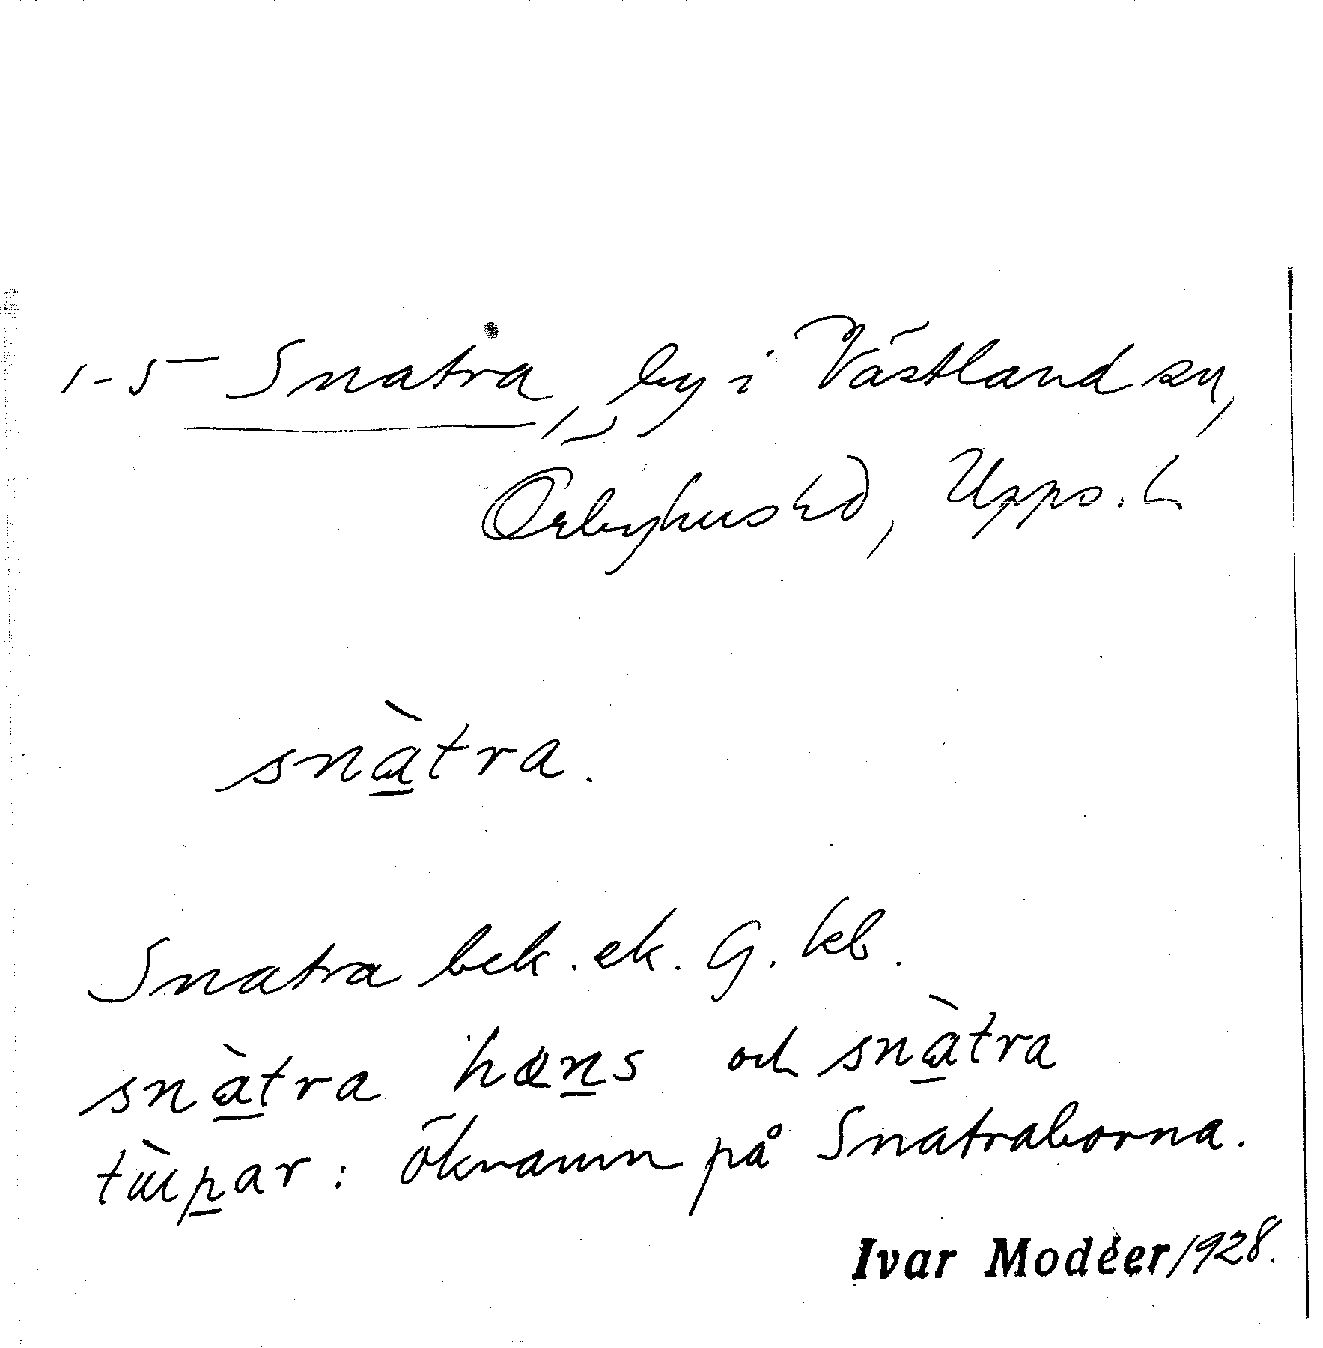 1-5 Snatra, by i Västland sn,
Örbyhus hd, Upps. L
snàtra.
Snatra bek. ek. G. kb.
snàtra hœns och snàtra
tùpar: öknamn på Snatraborna.
Ivar Modéer/1928.